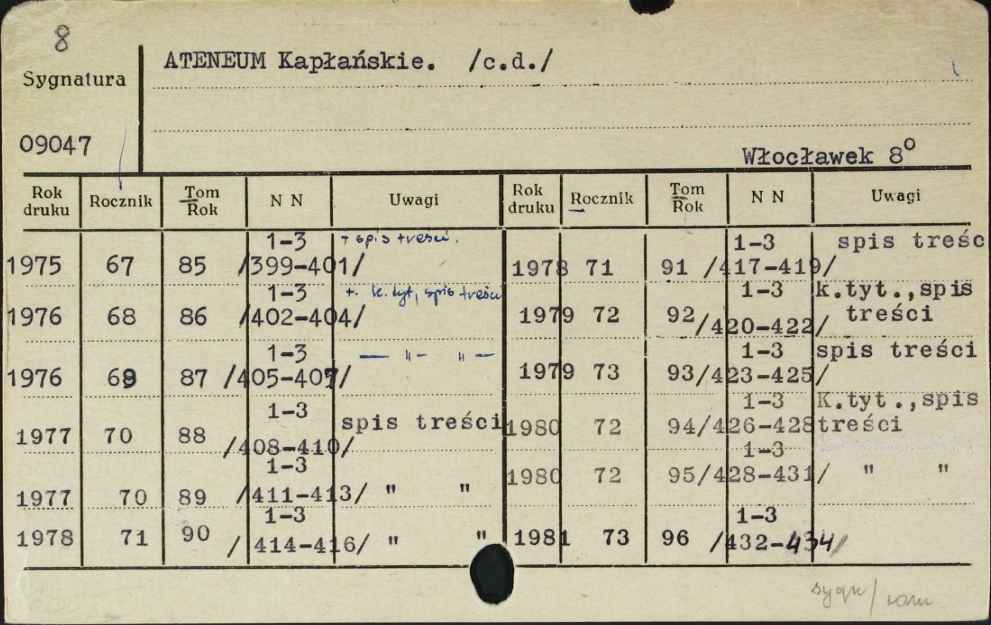 8
ATENEUM Kapłańskie. /c.d./
Sygnatura
09047
Włocławek 8º
Rok druku Rocznik Tom Rok N N Uwagi Rok druku Rocznik Tom Rok N N Uwagi
1975 67 85 1-3 /399-401/ + spis treści.
1976 68 86 1-3 /402-404/ +. k. tyt, spis treści
1976 69 87 1-3 /405-407/ — " — " —
1977 70 88 1-3 /408-410/ spis treści
1977 70 89 1-3 /411-413/ " "
1978 71 90 1-3 /414-416/ " "
1978 71 91 1-3 /417-419/ spis treśc
1979 72 92 1-3 /420-422/ k.tyt.,spis treści
1979 73 93 1-3 /423-425/ spis treści
1980 72 94 1-3 /426-428 K.tyt.,spis treści
1980 72 95 1-3 /428-431/ " "
1981 73 96 1-3 /432-434/